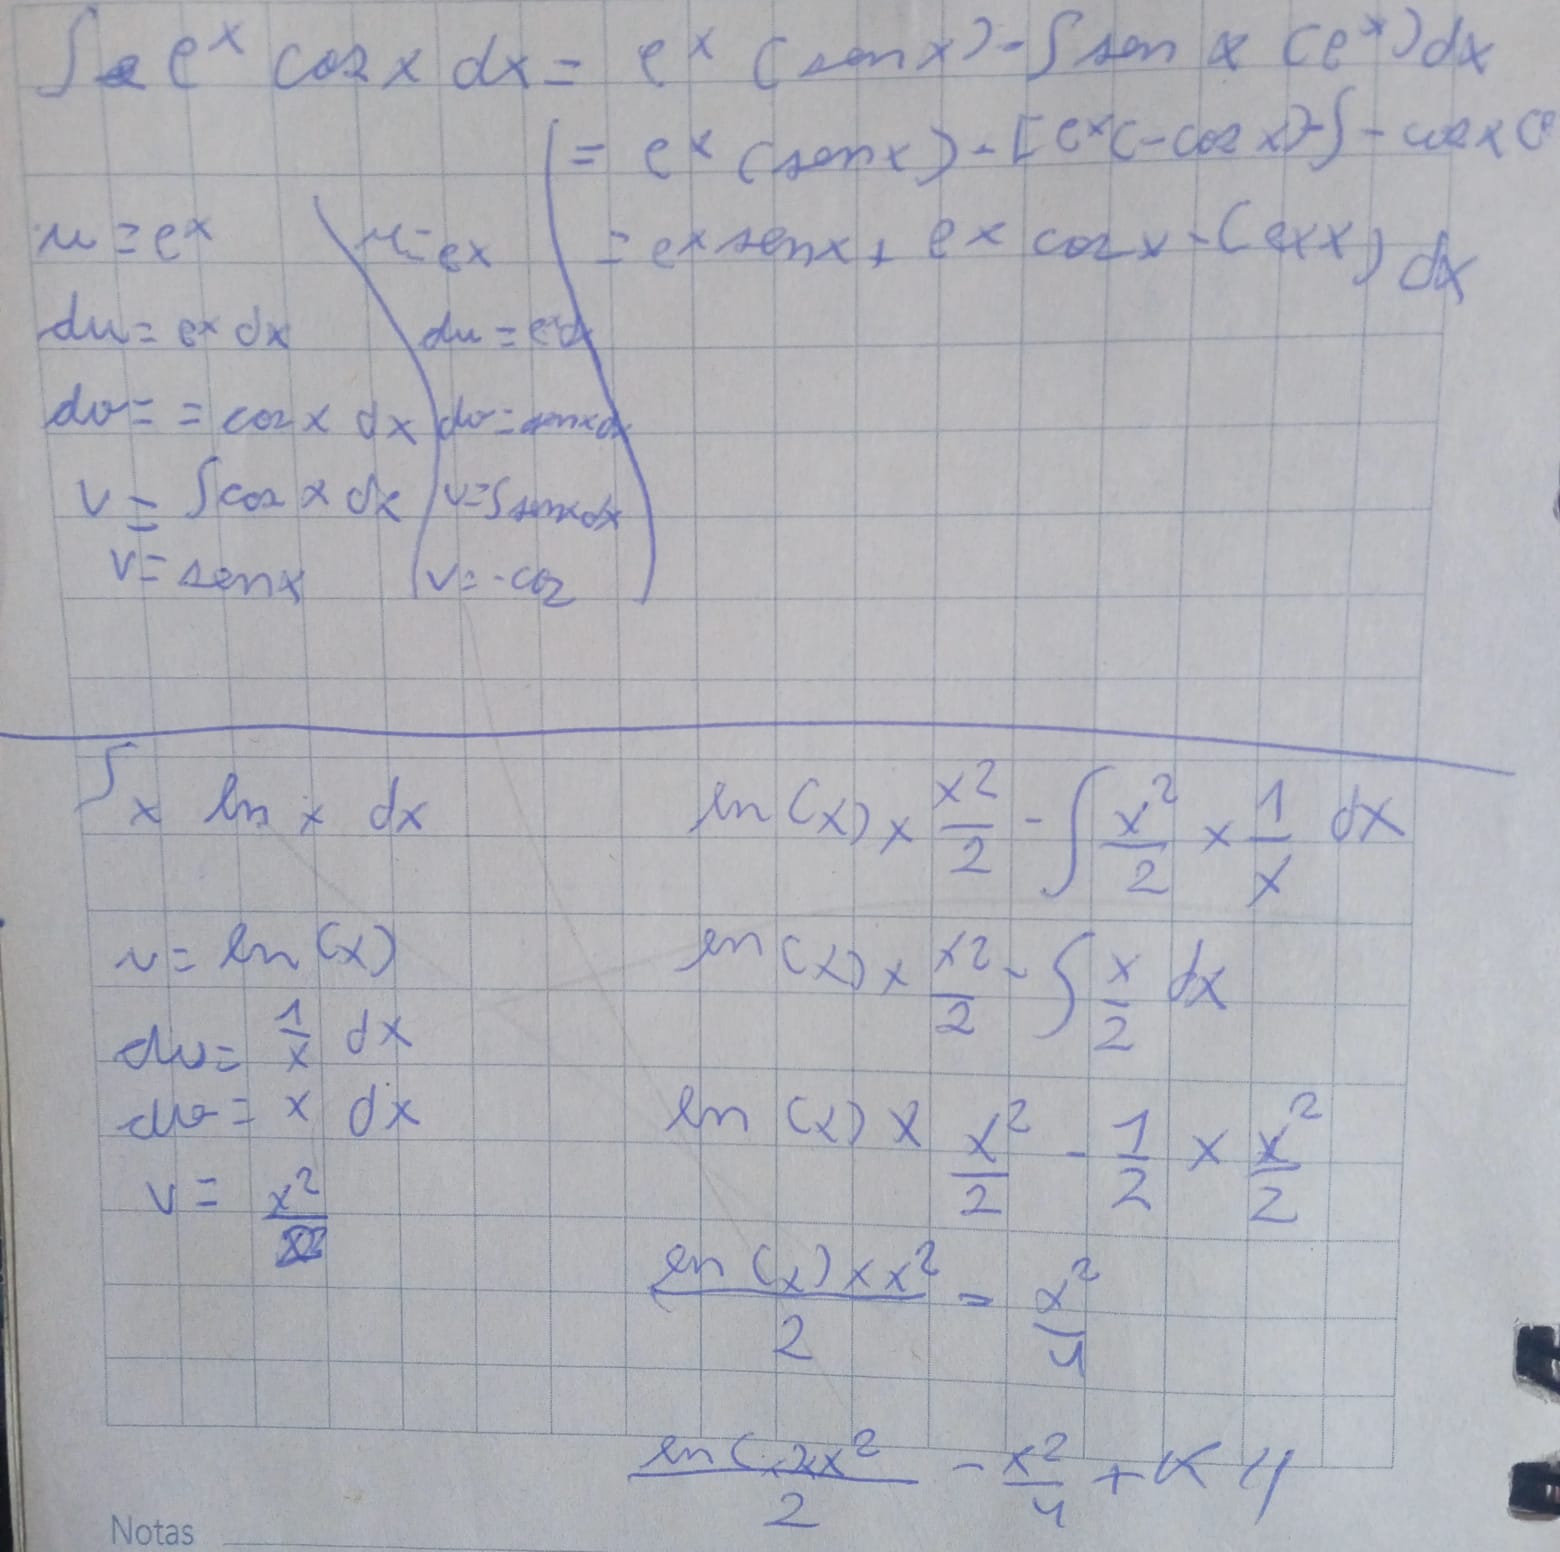 ∫ e^x cos x dx = e^x (sen x) - ∫ sen x (e^x) dx
= e^x (sen x) - [e^x (-cos x) - ∫ - cos x (e
= e^x sen x + e^x cos x - (      ) dx
u = e^x
du = e^x dx
dv = = cos x dx
v = ∫ cos x dx
v = sen x
u = e^x
du = e^x dx
dv = sen x dx
v = ∫ sen x dx
v = -cos
∫ x ln x dx
u = ln (x)
du = 1/x dx
dv = x dx
v = x^2/2
ln (x) × x^2/2 - ∫ x^2/2 × 1/x dx
ln (x) × x^2/2 - ∫ x/2 dx
ln (x) × x^2/2 - 1/2 × x^2/2
ln (x) × x^2 / 2 = x^2/4
x^2 / 2 - x^2/4 + K //
Notas